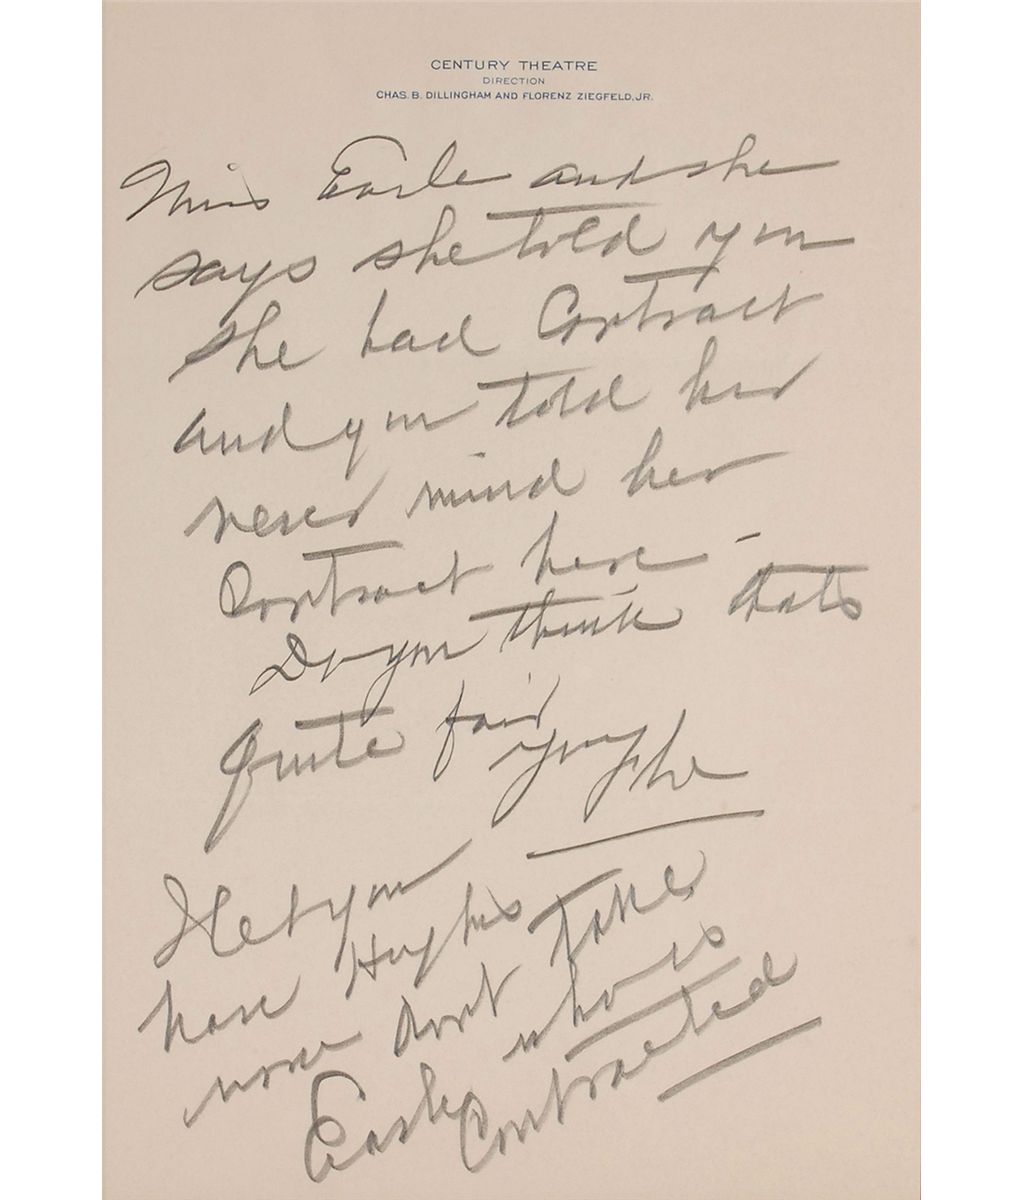 CENTURY THEATRE
DIRECTION
CHAS. B. DILLINGHAM AND FLORENZ ZIEGFELD, JR.
Miss Earle and she
says she told you
she had Contract
and you told her
never mind her
Contract here -
Do you think thats
quite fair
I let you
have Hughes
now dont Take
Earle who is
Contracted